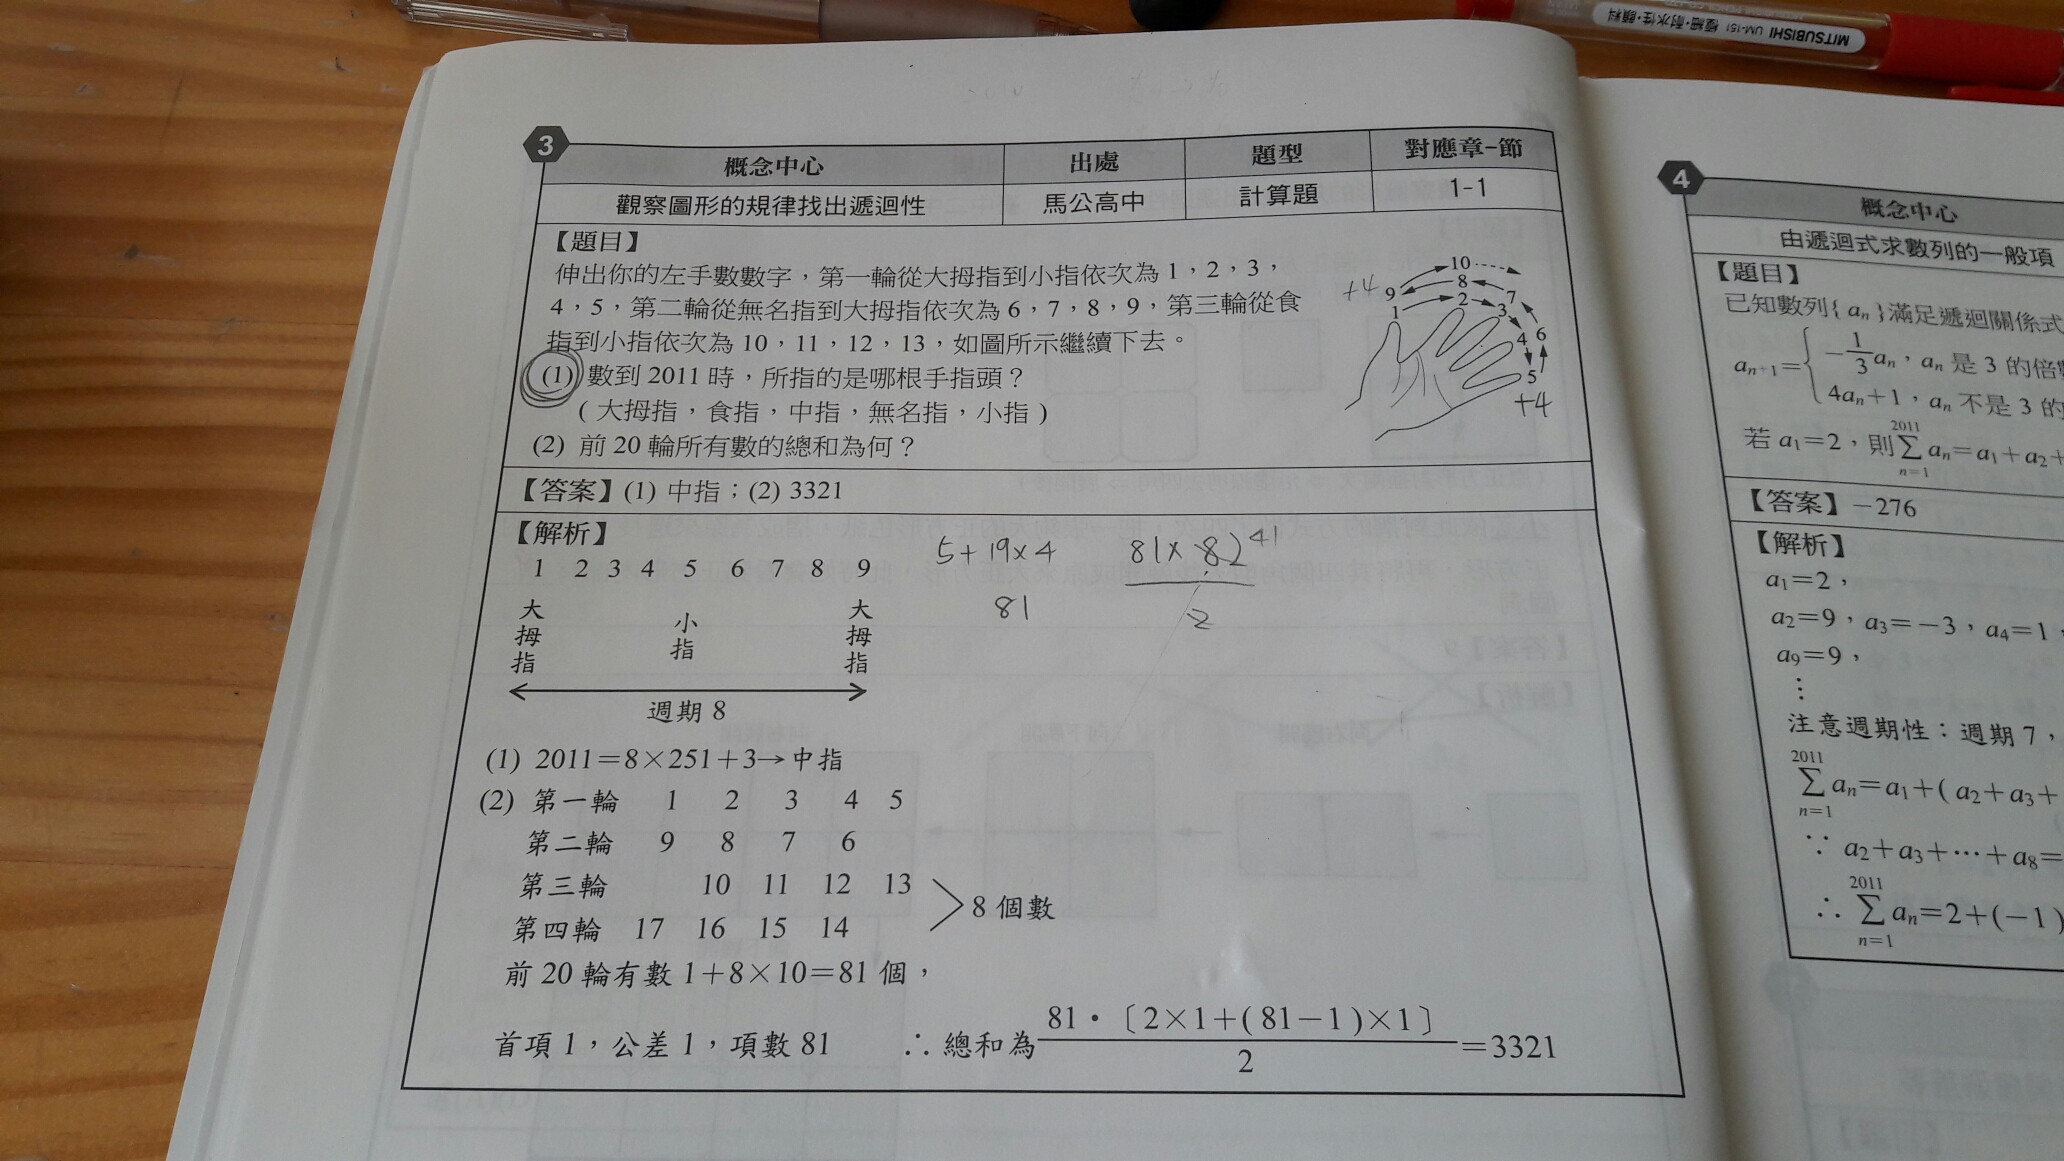 MITSUBISHI UM-151 極細・耐水性・顏料
3
概念中心 出處 題型 對應章-節
觀察圖形的規律找出遞迴性 馬公高中 計算題 1-1
【題目】
伸出你的左手數數字，第一輪從大拇指到小指依次為 1，2，3，
4，5，第二輪從無名指到大拇指依次為 6，7，8，9，第三輪從食
指到小指依次為 10，11，12，13，如圖所示繼續下去。
(1) 數到 2011 時，所指的是哪根手指頭？
( 大拇指，食指，中指，無名指，小指 )
(2) 前 20 輪所有數的總和為何？
10
8
+4 9 2 7
1 3
4 6
5
+4
【答案】(1) 中指；(2) 3321
【解析】
1 2 3 4 5 6 7 8 9
大拇指 小指 大拇指
週期 8
5+19×4
81
81×82 41
2
(1) 2011＝8×251＋3→中指
(2) 第一輪 1 2 3 4 5
第二輪 9 8 7 6
第三輪 10 11 12 13
第四輪 17 16 15 14
8 個數
前 20 輪有數 1＋8×10＝81 個，
首項 1，公差 1，項數 81 ∴ 總和為 81・〔2×1＋(81－1)×1〕/2 ＝3321
4
概念中心
由遞迴式求數列的一般項
【題目】
已知數列{ aₙ }滿足遞迴關係式
aₙ₊₁＝{ －1/3 aₙ，aₙ 是 3 的倍
4aₙ＋1，aₙ 不是 3 的
若 a₁＝2，則 2011 Σ n=1 aₙ＝a₁＋a₂＋
【答案】－276
【解析】
a₁＝2，
a₂＝9，a₃＝－3，a₄＝1，
a₉＝9，
⋮
注意週期性：週期 7，
2011 Σ n=1 aₙ＝a₁＋( a₂＋a₃＋
∵ a₂＋a₃＋⋯＋a₈＝
∴ 2011 Σ n=1 aₙ＝2＋(－1)